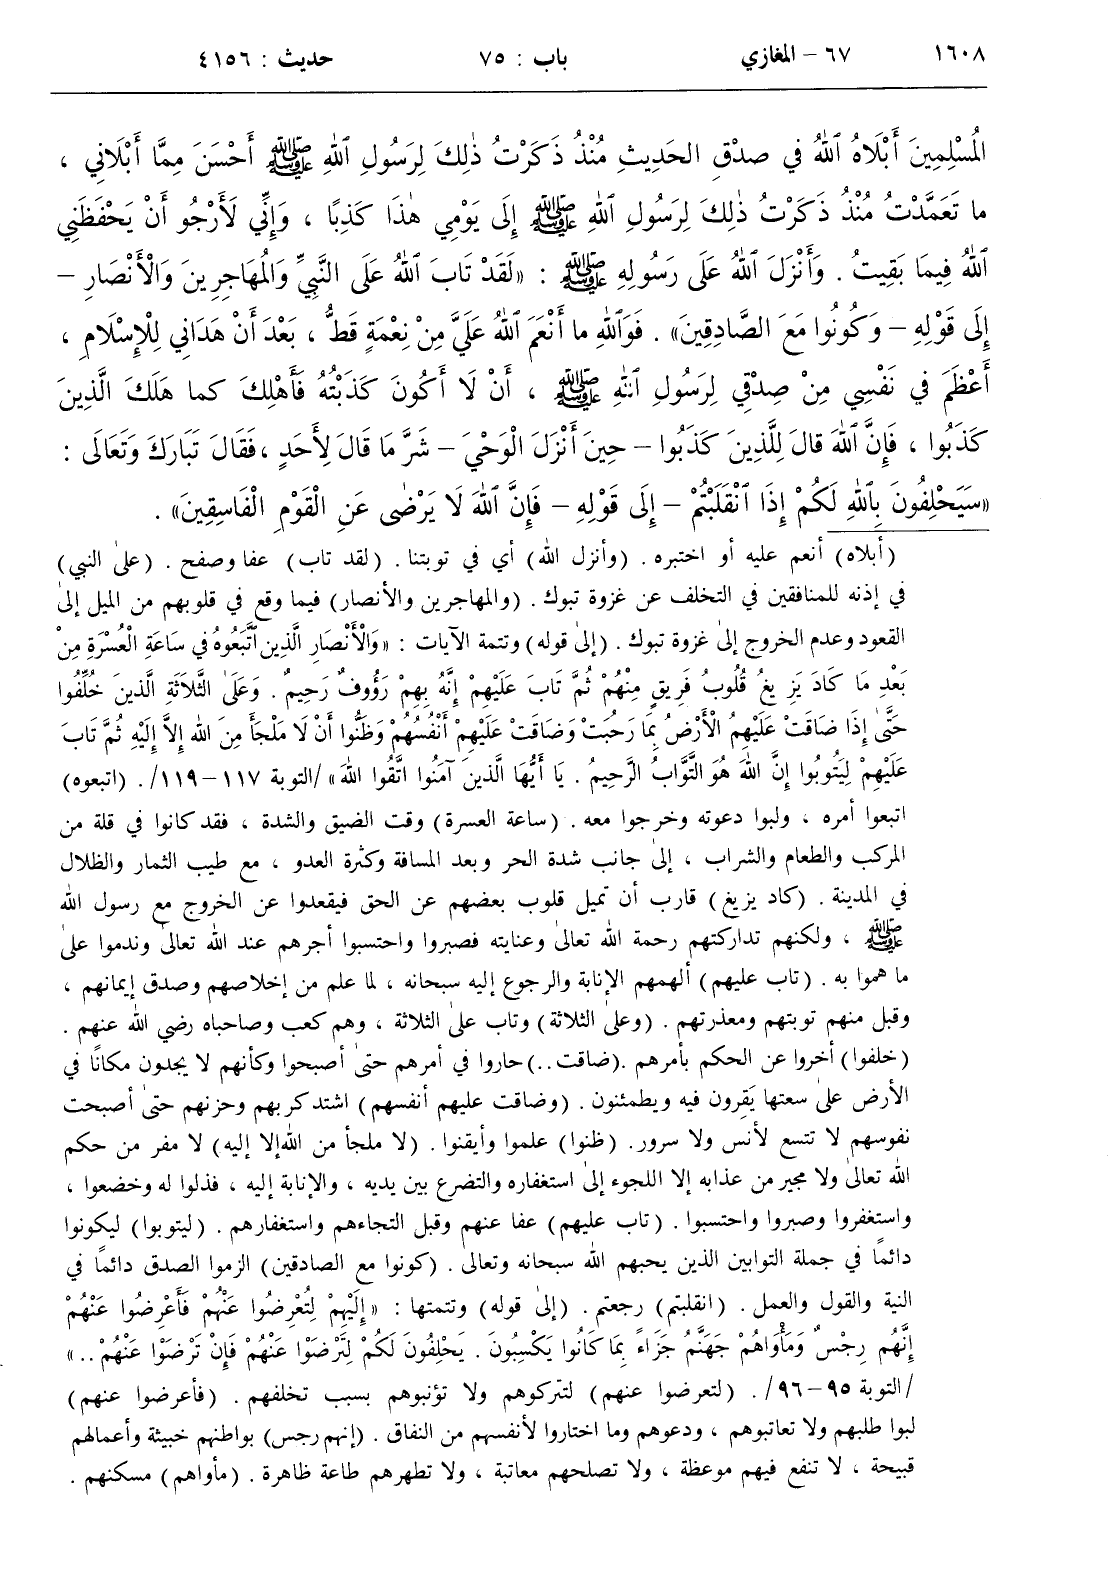 ١٦٠٨ ٦٧ – المغازي باب : ٧٥ حديث : ٤١٥٦
المُسْلِمِينَ أَبْلَاهُ ٱللهُ في صدْقِ الحَدِيثِ مُنْذُ ذَكَرْتُ ذٰلِكَ لِرَسُولِ ٱللهِ ﷺ أَحْسَنَ مِمَّا أَبْلَاني ،
ما تَعَمَّدْتُ مُنْذُ ذَكَرْتُ ذٰلِكَ لِرَسُولِ ٱللهِ ﷺ إِلَى يَوْمِي هٰذَا كَذِبًا ، وَإِنِّي لَأَرْجُو أَنْ يَحْفَظَنِي
ٱللهُ فِيمَا بَقِيتُ . وَأَنْزَلَ ٱللهُ عَلَى رَسُولِهِ ﷺ : «لَقَدْ تَابَ ٱللهُ عَلَى النَّبِيِّ وَالمُهَاجِرِينَ وَالْأَنْصَارِ –
إِلَى قَوْلِهِ – وَكُونُوا مَعَ الصَّادِقِينَ» . فَوَٱللهِ ما أَنْعَمَ ٱللهُ عَلَيَّ مِنْ نِعْمَةٍ قَطُّ ، بَعْدَ أَنْ هَدَاني لِلْإِسْلَامِ ،
أَعْظَمَ في نَفْسِي مِنْ صِدْقِي لِرَسُولِ ٱللهِ ﷺ ، أَنْ لَا أَكُونَ كَذَبْتُهُ فَأَهْلِكَ كما هَلَكَ الَّذِينَ
كَذَبُوا ، فَإِنَّ ٱللهَ قالَ لِلَّذِينَ كَذَبُوا – حِينَ أَنْزَلَ الْوَحْيَ – شَرَّ مَا قَالَ لِأَحَدٍ ،فَقَالَ تَبَارَكَ وَتَعَالَى :
«سَيَحْلِفُونَ بِٱللهِ لَكُمْ إِذَا ٱنْقَلَبْتُمْ – إِلَى قَوْلِهِ – فَإِنَّ ٱللهَ لَا يَرْضٰى عَنِ الْقَوْمِ الْفَاسِقِينَ» .
(أبلاه) أنعم عليه أو اختبره . (وأنزل الله) أي في توبتنا . (لقد تاب) عفا وصفح . (علىٰ النبي)
في إذنه للمنافقين في التخلف عن غزوة تبوك . (والمهاجرين والأنصار) فيما وقع في قلوبهم من الميل إلىٰ
القعود وعدم الخروج إلىٰ غزوة تبوك . (إلىٰ قوله) وتتمة الآيات : «وَالْأَنْصَارِ الَّذِينَ ٱتَّبَعُوهُ في سَاعَةِ الْعُسْرَةِ مِنْ
بَعْدِ مَا كَادَ يَزِيغُ قُلُوبُ فَرِيقٍ مِنْهُمْ ثُمَّ تَابَ عَلَيْهِمْ إِنَّهُ بِهِمْ رَؤُوفٌ رَحِيمٌ . وَعَلَىٰ الثَّلَاثَةِ الَّذِينَ خُلِّفُوا
حَتَّىٰ إِذَا ضَاقَتْ عَلَيْهِمُ الْأَرْضُ بِمَا رَحُبَتْ وَضَاقَتْ عَلَيْهِمْ أَنْفُسُهُمْ وَظَنُّوا أَنْ لَا مَلْجَأَ مِنَ اللهِ إِلَّا إِلَيْهِ ثُمَّ تَابَ
عَلَيْهِمْ لِيَتُوبُوا إِنَّ اللهَ هُوَ التَّوَّابُ الرَّحِيمُ . يَا أَيُّهَا الَّذِينَ آمَنُوا اتَّقُوا اللهَ» /التوبة ١١٧–١١٩/. (اتبعوه)
اتبعوا أمره ، ولبوا دعوته وخرجوا معه . (ساعة العسرة) وقت الضيق والشدة ، فقد كانوا في قلة من
المركب والطعام والشراب ، إلىٰ جانب شدة الحر وبعد المسافة وكثرة العدو ، مع طيب الثمار والظلال
في المدينة . (كاد يزيغ) قارب أن تميل قلوب بعضهم عن الحق فيقعدوا عن الخروج مع رسول الله
ﷺ ، ولكنهم تداركتهم رحمة الله تعالىٰ وعنايته فصبروا واحتسبوا أجرهم عند الله تعالىٰ وندموا علىٰ
ما هموا به . (تاب عليهم) ألهمهم الإنابة والرجوع إليه سبحانه ، لما علم من إخلاصهم وصدق إيمانهم ،
وقبل منهم توبتهم ومعذرتهم . (وعلى الثلاثة) وتاب علىٰ الثلاثة ، وهم كعب وصاحباه رضي الله عنهم .
(خلفوا) أخروا عن الحكم بأمرهم .(ضاقت..)حاروا في أمرهم حتىٰ أصبحوا وكأنهم لا يجدون مكانًا في
الأرض علىٰ سعتها يَقِرون فيه ويطمئنون . (وضاقت عليهم أنفسهم) اشتد كربهم وحزنهم حتىٰ أصبحت
نفوسهم لا تتسع لأنس ولا سرور. (ظنوا) علموا وأيقنوا . (لا ملجأ من الله إلا إليه) لا مفر من حكم
الله تعالىٰ ولا مجير من عذابه إلا اللجوء إلىٰ استغفاره والتضرع بين يديه ، والإنابة إليه ، فذلوا له وخضعوا ،
واستغفروا وصبروا واحتسبوا . (تاب عليهم) عفا عنهم وقبل التجاءهم واستغفارهم . (ليتوبوا) ليكونوا
دائمًا في جملة التوابين الذين يحبهم الله سبحانه وتعالى . (كونوا مع الصادقين) الزموا الصدق دائمًا في
النية والقول والعمل . (انقلبتم) رجعتم . (إلىٰ قوله) وتتمتها : «إِلَيْهِمْ لِتُعْرِضُوا عَنْهُمْ فَأَعْرِضُوا عَنْهُمْ
إِنَّهُم رِجْسٌ وَمَأْوَاهُمْ جَهَنَّمُ جَزَاءً بِمَا كَانُوا يَكْسِبُونَ . يَحْلِفُونَ لَكُمْ لِتَرْضَوْا عَنْهُمْ فَإِنْ تَرْضَوْا عَنْهُمْ ..»
/التوبة ٩٥–٩٦/. (لتعرضوا عنهم) لتتركوهم ولا تؤنبوهم بسبب تخلفهم . (فأعرضوا عنهم)
لبوا طلبهم ولا تعاتبوهم ، ودعوهم وما اختاروا لأنفسهم من النفاق . (إنهم رجس) بواطنهم خبيثة وأعمالهم
قبيحة ، لا تنفع فيهم موعظة ، ولا تصلحهم معاتبة ، ولا تطهرهم طاعة ظاهرة . (مأواهم) مسكنهم .